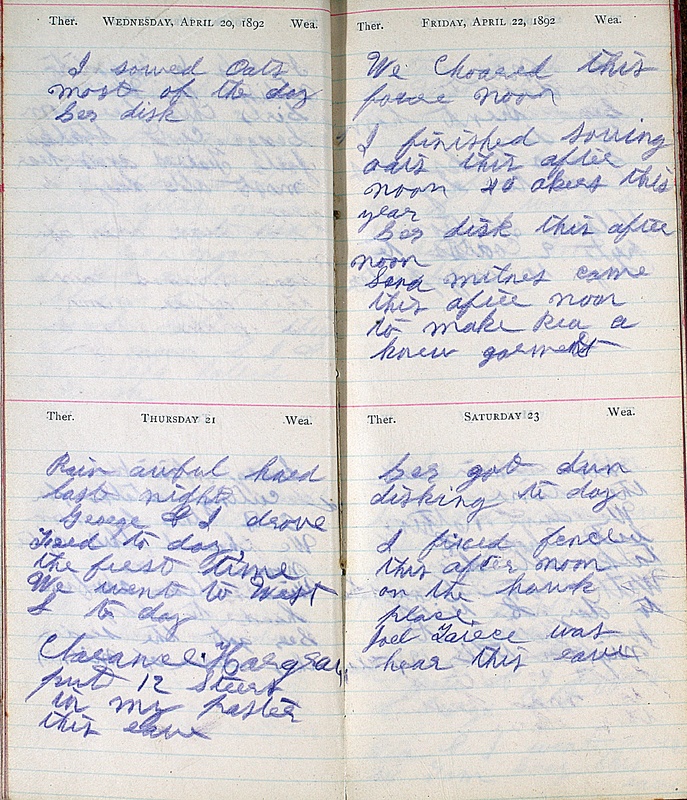 Ther. WEDNESDAY, APRIL 20, 1892 Wea.
I sowed Oats
most of the day
disk
Ther. THURSDAY 21 Wea.
Rain awful hard
last night
George & I drove
Fred to day
the first time
We went to West
to day
Clarance
put 12 Steers
in my paster
this eave
Ther. FRIDAY, APRIL 22, 1892 Wea.
We Choared this
foree noon
I finished soving
oats this after
noon 40 akers this
year
disk this after
noon
came
this after noon
to make a
knew garment
Ther. SATURDAY 23 Wea.
got dun
disking to day
I fixed fence
this after noon
on the hauk
place
Joel was
hear this eave